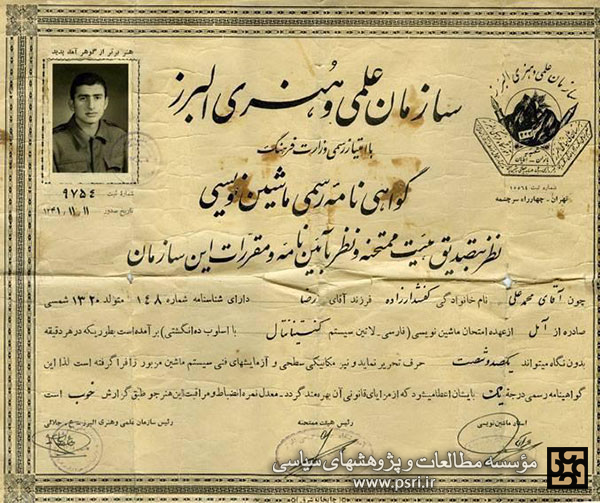 هنر برتر از گوهر آمد پدید
سازمان علمی و هنری البرز
با امتیاز رسمی وزارت فرهنگ
گواهی نامه رسمی ماشین نویسی
سازمان علمی و هنری البرز
شماره ثبت ۱۰۵۱۴
تهران - چهارراه سرچشمه
شماره ثبت ۹۷۵۴
تاریخ صدور ۱۳۴۱،۱۱،۱۱
نظر بتصدیق هیئت ممتحنه و نظر بآئین نامه و مقررات این سازمان
چون آقای محمدعلی نام خانوادگی کفشدارزاده فرزند آقای رضا دارای شناسنامه شماره ۱۴۸ متولد ۱۳۲۰ شمسی
صادره از آمل از عهده امتحان ماشین نویسی (فارسی - لاتین سیستم کنتیناتال با اسلوب ده انگشتی) برآمده است بطوریکه در هر دقیقه
بدون نگاه میتواند یکصد و شصت حرف تحریر نماید و نیز مکانیکی سطحی و آزمایشهای فنی سیستم ماشین مزبور را فرا گرفته است لذا این
گواهینامه رسمی درجه یک بایشان اعطا میشود که از مزایای قانونی آن بهره‌مند گردد - معدل نمره انضباط و مراقبت این هنرجو طبق گزارش خوب است
استاد ماشین نویسی
رئیس هیئت ممتحنه
رئیس سازمان علمی و هنری البرز - ع - جلالی
مؤسسه مطالعات و پژوهشهای سیاسی
www.psri.ir